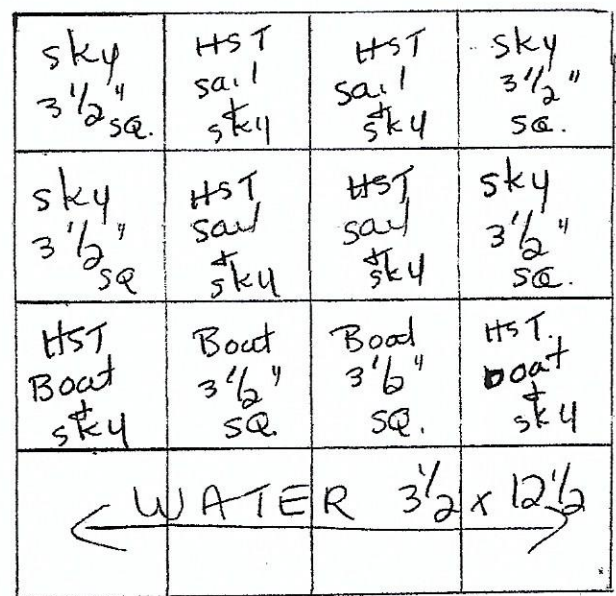 sky
3 1/2"
SQ.
HST
sail
&
sky
HST
sail
&
sky
sky
3 1/2"
SQ.
sky
3 1/2"
SQ
HST
sail
&
sky
HST
sail
&
sky
sky
3 1/2"
SQ.
HST
Boat
&
sky
Boat
3 1/2"
SQ.
Boat
3 1/2"
SQ.
HST.
boat
&
sky
WATER 3 1/2 x 12 1/2